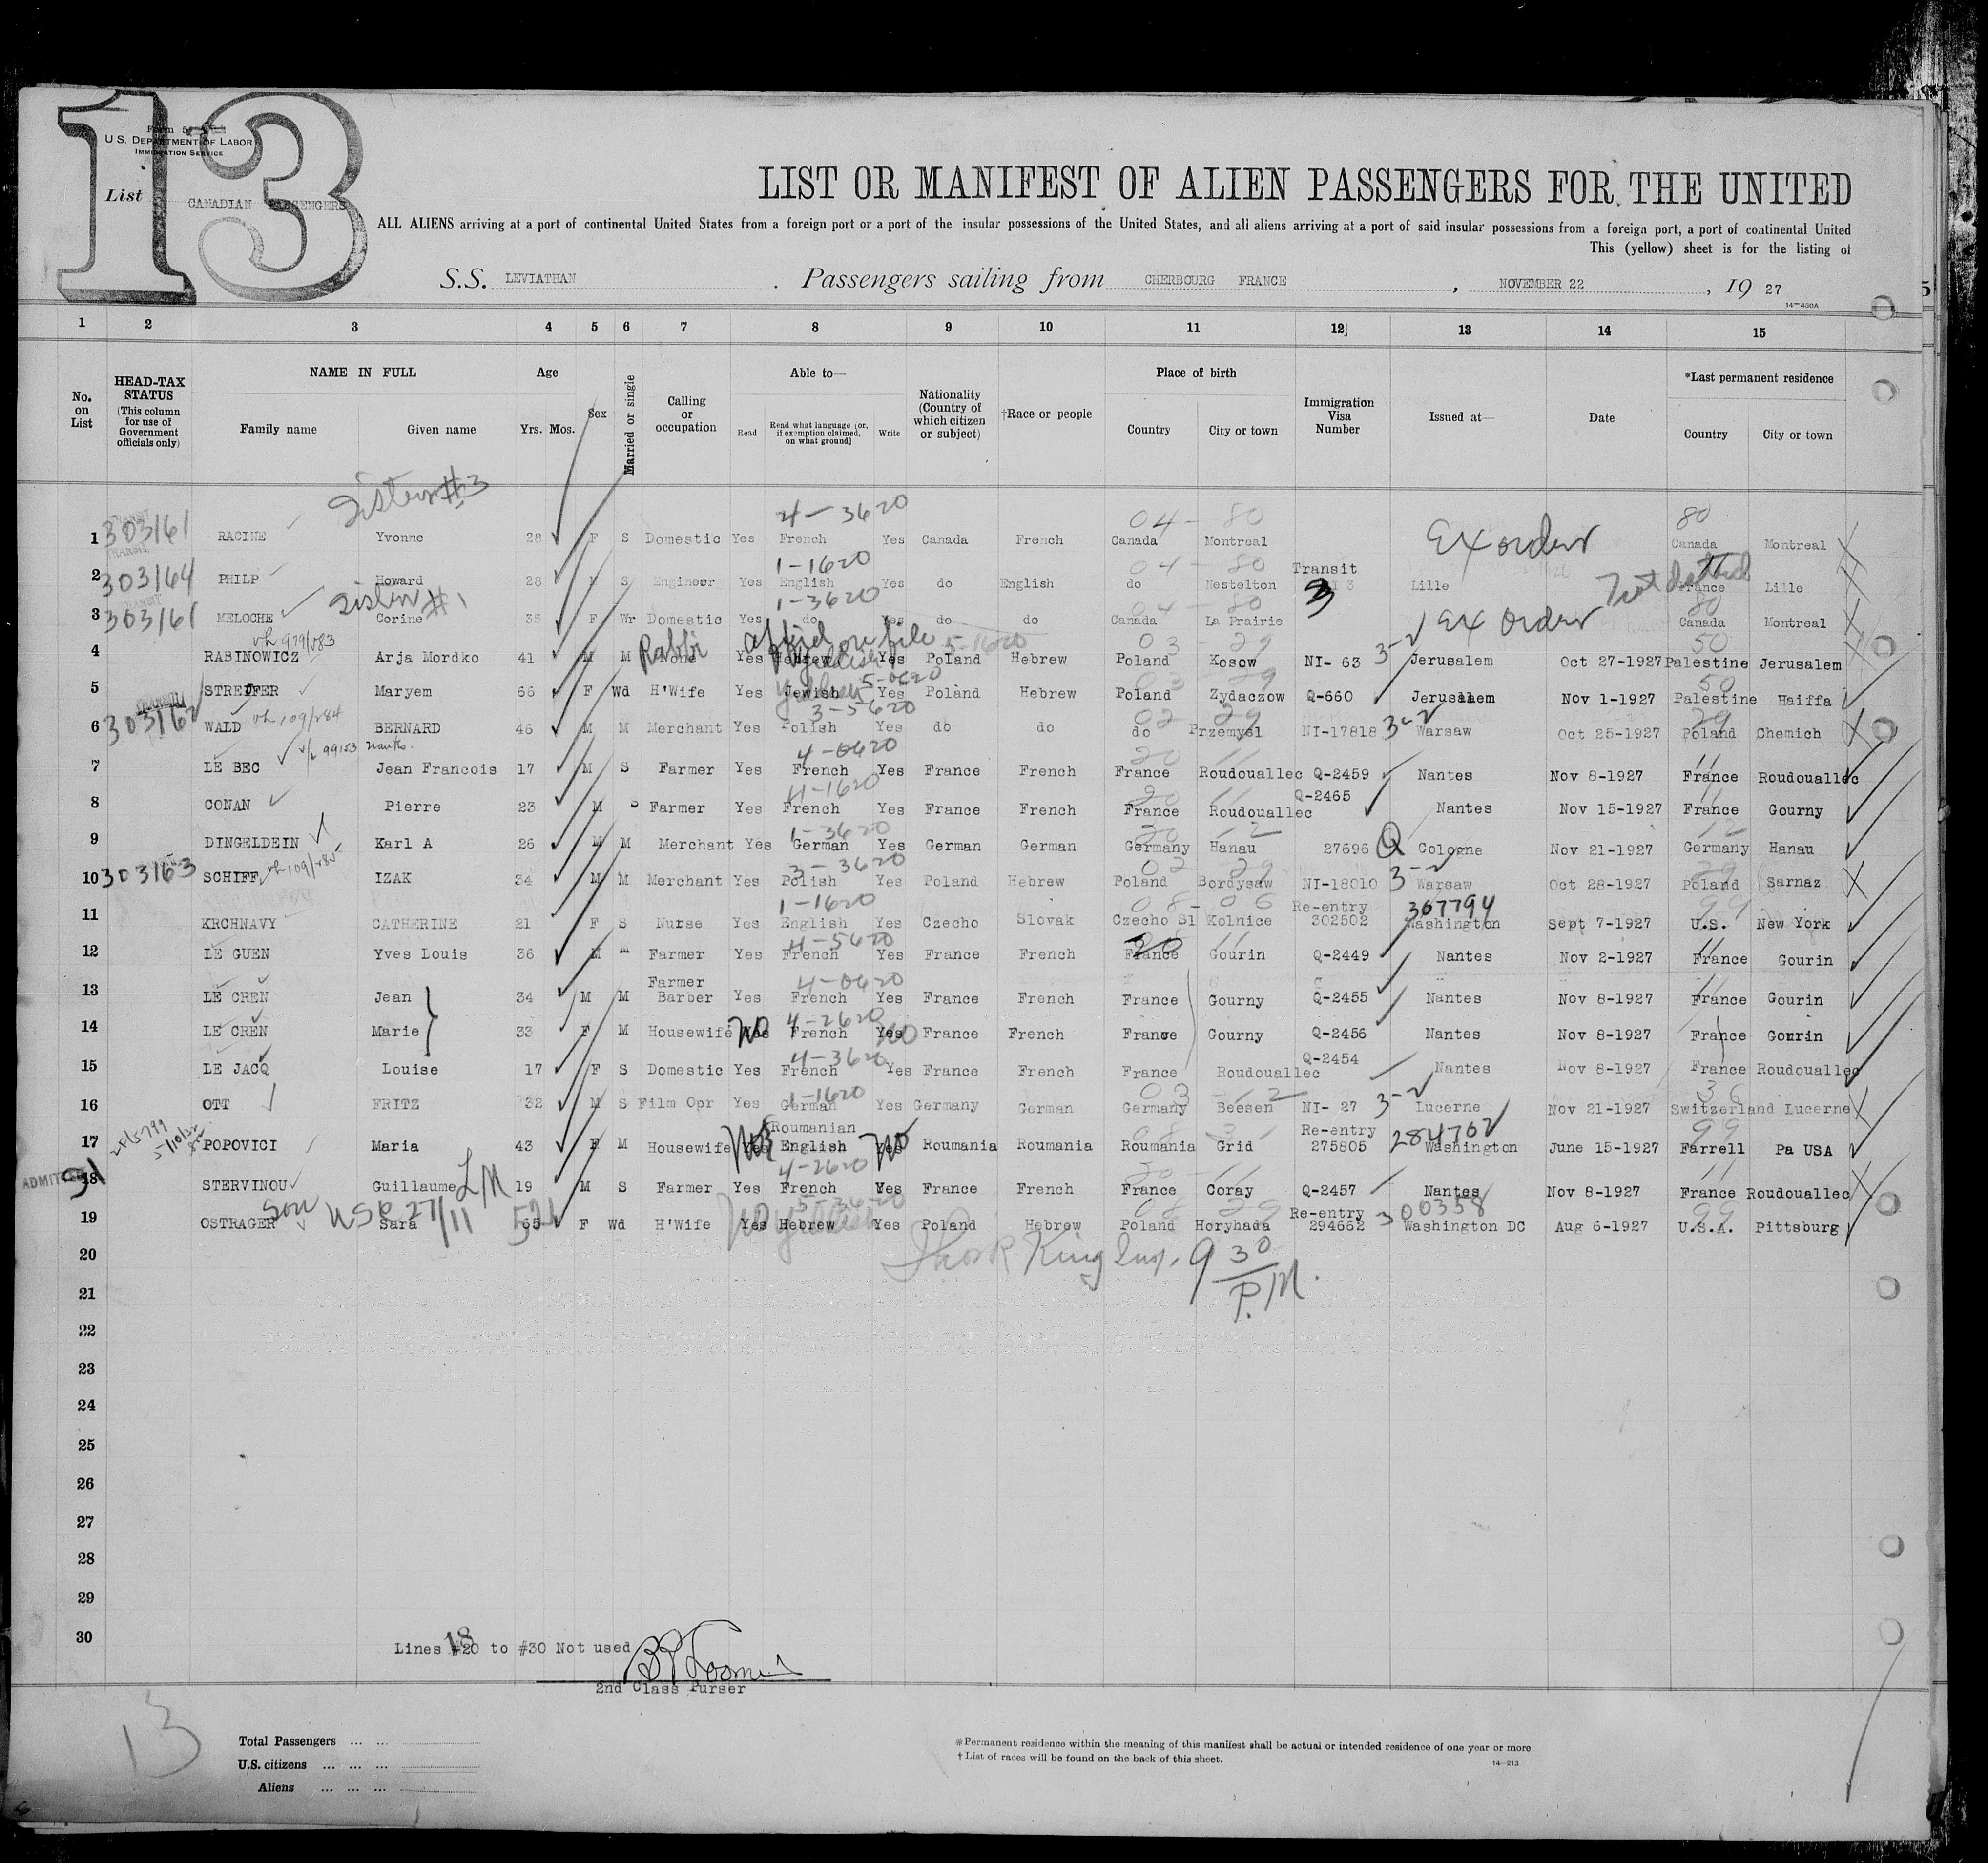 13
Form 5
U S. DEPARTMENT OF LABOR
IMMIGRATION SERVICE
List CANADIAN PASSENGERS
LIST OR MANIFEST OF ALIEN PASSENGERS FOR THE UNITED
ALL ALIENS arriving at a port of continental United States from a foreign port or a port of the insular possessions of the United States, and all aliens arriving at a port of said insular possessions from a foreign port, a port of continental United
This (yellow) sheet is for the listing of
S.S. LEVIATHAN . Passengers sailing from CHERBOURG FRANCE , NOVEMBER 22 , 19 27
14—430A
1 2 3 4 5 6 7 8 9 10 11 12 13 14 15
No. on List
HEAD-TAX STATUS (This column for use of Government officials only)
NAME IN FULL Family name Given name
Age Yrs. Mos.
Sex
Married or single
Calling or occupation
Able to— Read Read what language (or, if exemption claimed, on what ground) Write
Nationality (Country of which citizen or subject)
†Race or people
Place of birth Country City or town
Immigration Visa Number
Issued at—
Date
*Last permanent residence Country City or town
Sister #3
4-3620 04-80 80
1 303161 TRANSIT RACINE Yvonne 28 F S Domestic Yes French Yes Canada French Canada Montreal Ex order Canada Montreal
1-1620 04-80 Transit
2 303164 TRANSIT PHILP Howard 28 M S Engineer Yes English Yes do English do Nestelton 3 Lille France Lille
Sister #1 1-3620 04-80 80
3 303161 TRANSIT MELOCHE Corine 35 F Wr Domestic Yes do Yes do do Canada La Prairie Ex order Canada Montreal
Rabbi affid on file Yiddish 5-1620 03-29 50
4 RABINOWICZ Arja Mordko 41 M M None Yes Hebrew Yes Poland Hebrew Poland Kosow NI- 63 3-2 Jerusalem Oct 27-1927 Palestine Jerusalem
5-0620 03 29 50
5 STREIFER Maryem 66 F Wd H'Wife Yes Jewish Yes Poland Hebrew Poland Zydaczow Q-660 Jerusalem Nov 1-1927 Palestine Haiffa
3-5620 02 29 29
6 303162 TRANSIT WALD BERNARD 46 M M Merchant Yes Polish Yes do do do Przemysl NI-17818 3-2 Warsaw Oct 25-1927 Poland Chemich
4-0620 20 11 11
7 LE BEC Jean Francois 17 M S Farmer Yes French Yes France French France Roudouallec Q-2459 Nantes Nov 8-1927 France Roudouallec
4-1620 20 11 11
8 CONAN Pierre 23 M S Farmer Yes French Yes France French France Roudouallec Q-2465 Nantes Nov 15-1927 France Gourny
1-3620 20 12 12
9 DINGELDEIN Karl A 26 M M Merchant Yes German Yes German German Germany Hanau 27696 Q Cologne Nov 21-1927 Germany Hanau
3-3620 02 29 29
10 303163 SCHIFF IZAK 34 M M Merchant Yes Polish Yes Poland Hebrew Poland Bordysaw NI-18010 3-2 Warsaw Oct 28-1927 Poland Sarnaz
1-1620 08-06 Re-entry 307794 99
11 KRCHNAVY CATHERINE 21 F S Nurse Yes English Yes Czecho Slovak Czecho Sl Kolnice 302502 Washington Sept 7-1927 U.S. New York
4-5620 20 11 11
12 LE GUEN Yves Louis 36 M Farmer Yes French Yes France French France Gourin Q-2449 Nantes Nov 2-1927 France Gourin
Farmer 4-0620 11
13 LE CREN Jean 34 M M Barber Yes French Yes France French France Gourny Q-2455 Nantes Nov 8-1927 France Gourin
4-2620
14 LE CREN Marie 33 F M Housewife Yes No French Yes No France French France Gourny Q-2456 Nantes Nov 8-1927 France Gourin
4-3620
15 LE JACQ Louise 17 F S Domestic Yes French Yes France French France Roudouallec Q-2454 Nantes Nov 8-1927 France Roudouallec
1-1620 03-12 36
16 OTT FRITZ 32 M S Film Opr Yes German Yes Germany German Germany Beesen NI- 27 3-2 Lucerne Nov 21-1927 Switzerland Lucerne
Roumanian Re-entry 284702 99
17 POPOVICI Maria 43 F M Housewife Yes No English Yes No Roumania Roumania Roumania Grid 275805 Washington June 15-1927 Farrell Pa USA
4-2620 20 11 11
18 ADMITTED 91 STERVINOU Guillaume 19 M S Farmer Yes French Yes France French France Coray Q-2457 Nantes Nov 8-1927 France Roudouallec
Son 5-3620 08 29 Re-entry 300358 99
19 OSTRAGER Sara 65 F Wd H'Wife Yes No Hebrew Yiddish Yes Poland Hebrew Poland Horyhada 294662 Washington DC Aug 6-1927 U.S.A. Pittsburg
20 King Insp. 9 30 P.M.
21
22
23
24
25
26
27
28
29
30
Lines #20 18 to #30 Not used
2nd Class Purser
13
Total Passengers ... ...
U.S. citizens ... ... ...
Aliens ... ... ...
*Permanent residence within the meaning of this manifest shall be actual or intended residence of one year or more
†List of races will be found on the back of this sheet.
14—213